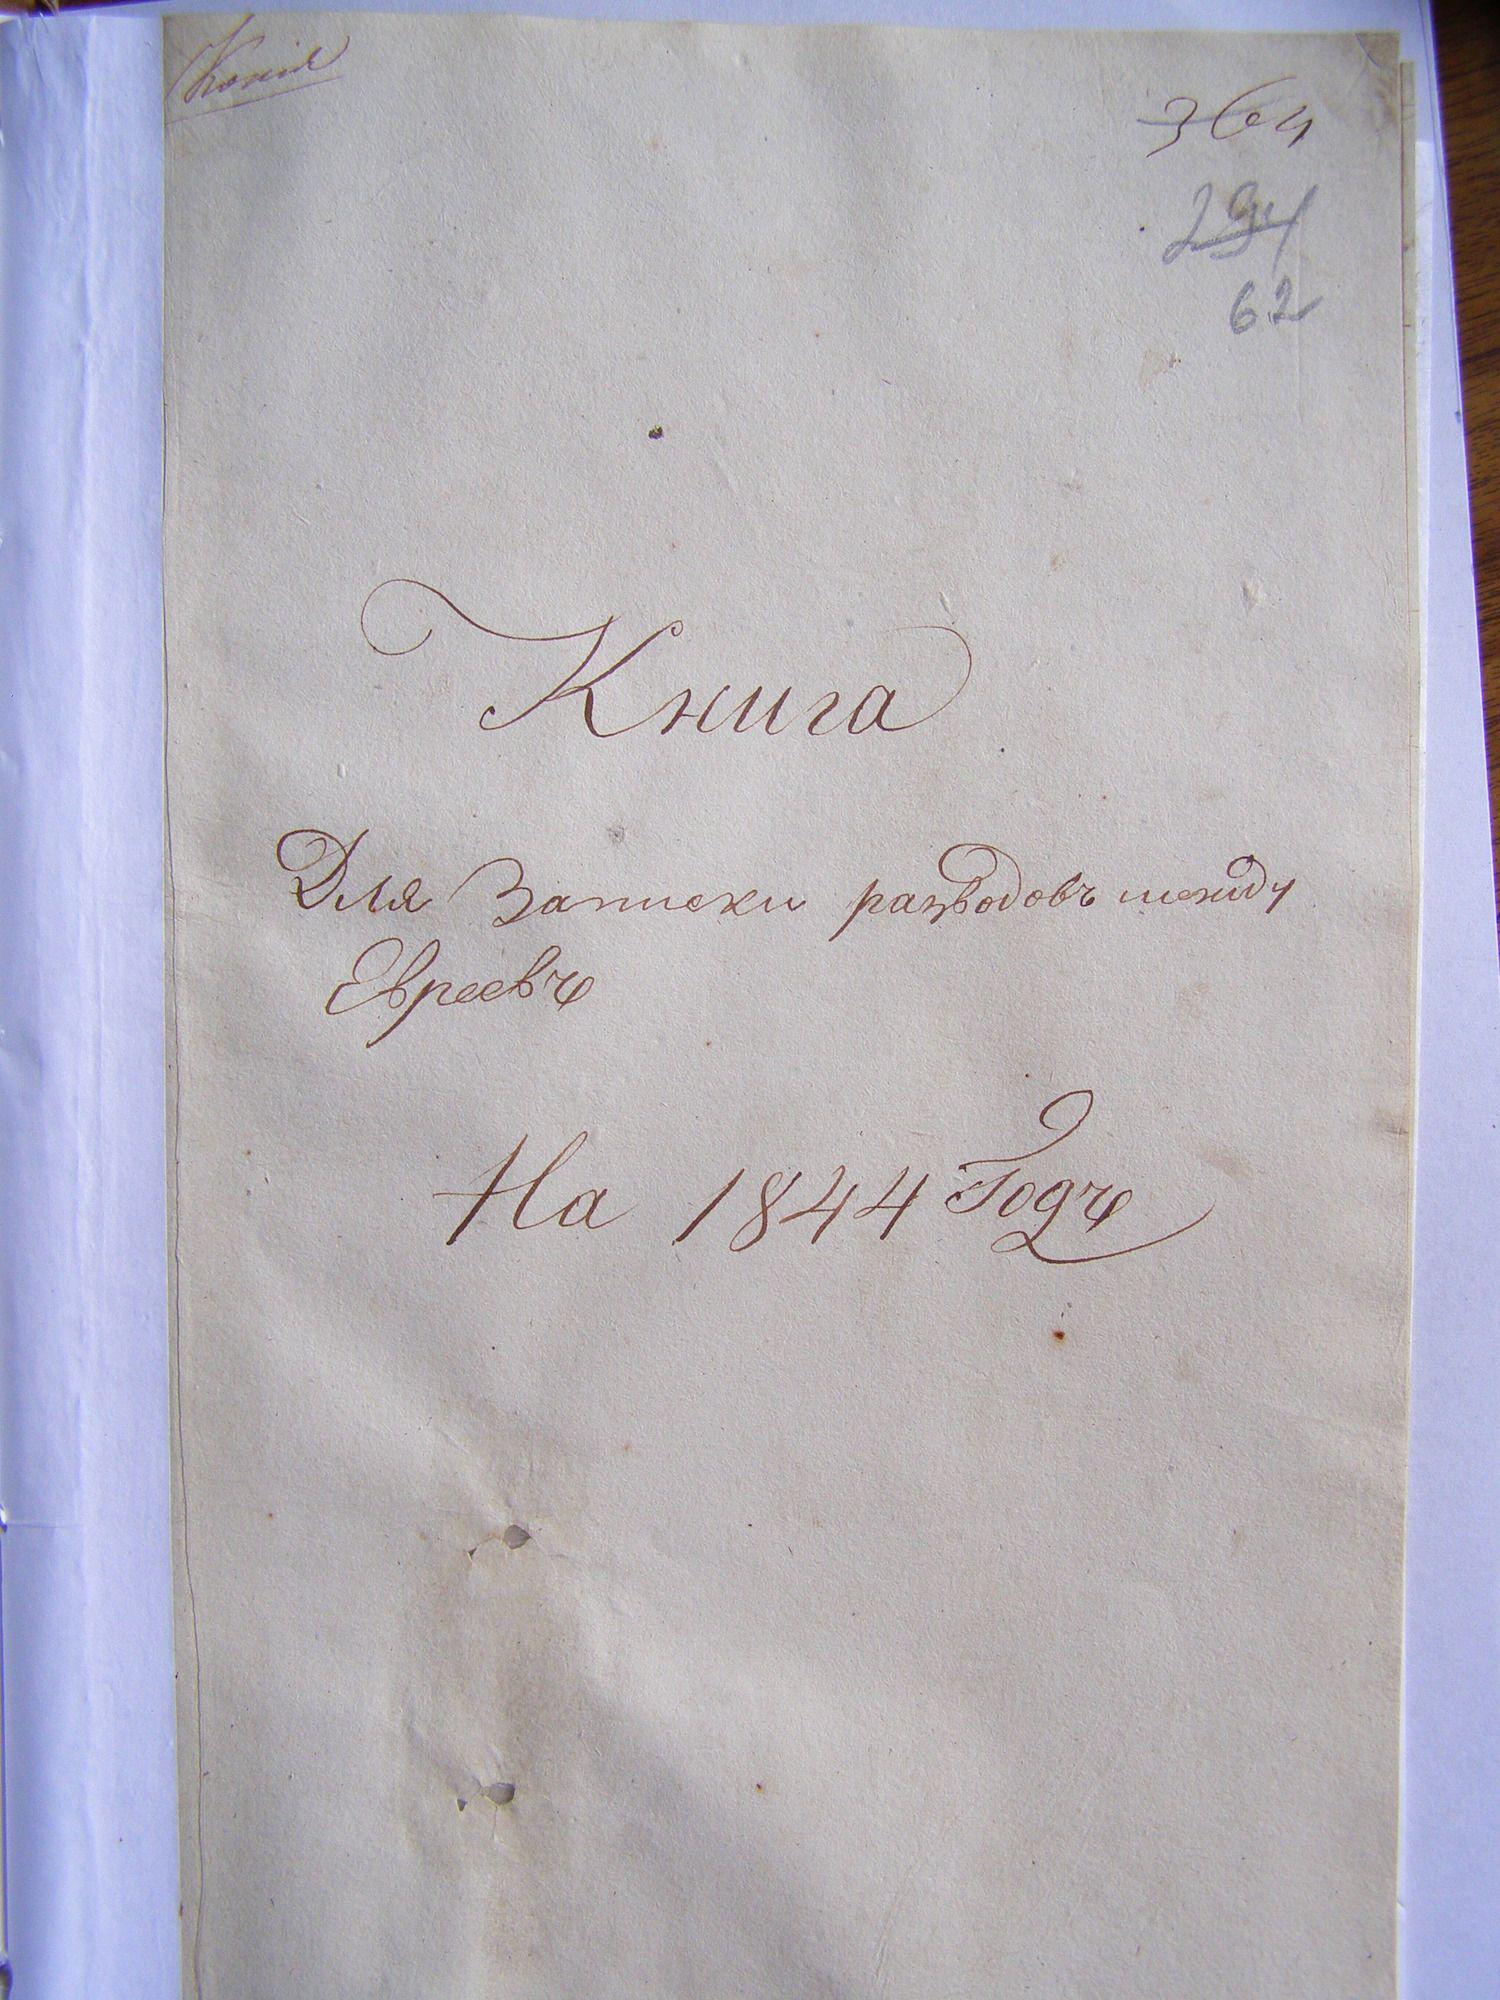 Копія
364
294
62
Книга
Для Записки разводовъ между
Евреевъ
На 1844 Годъ